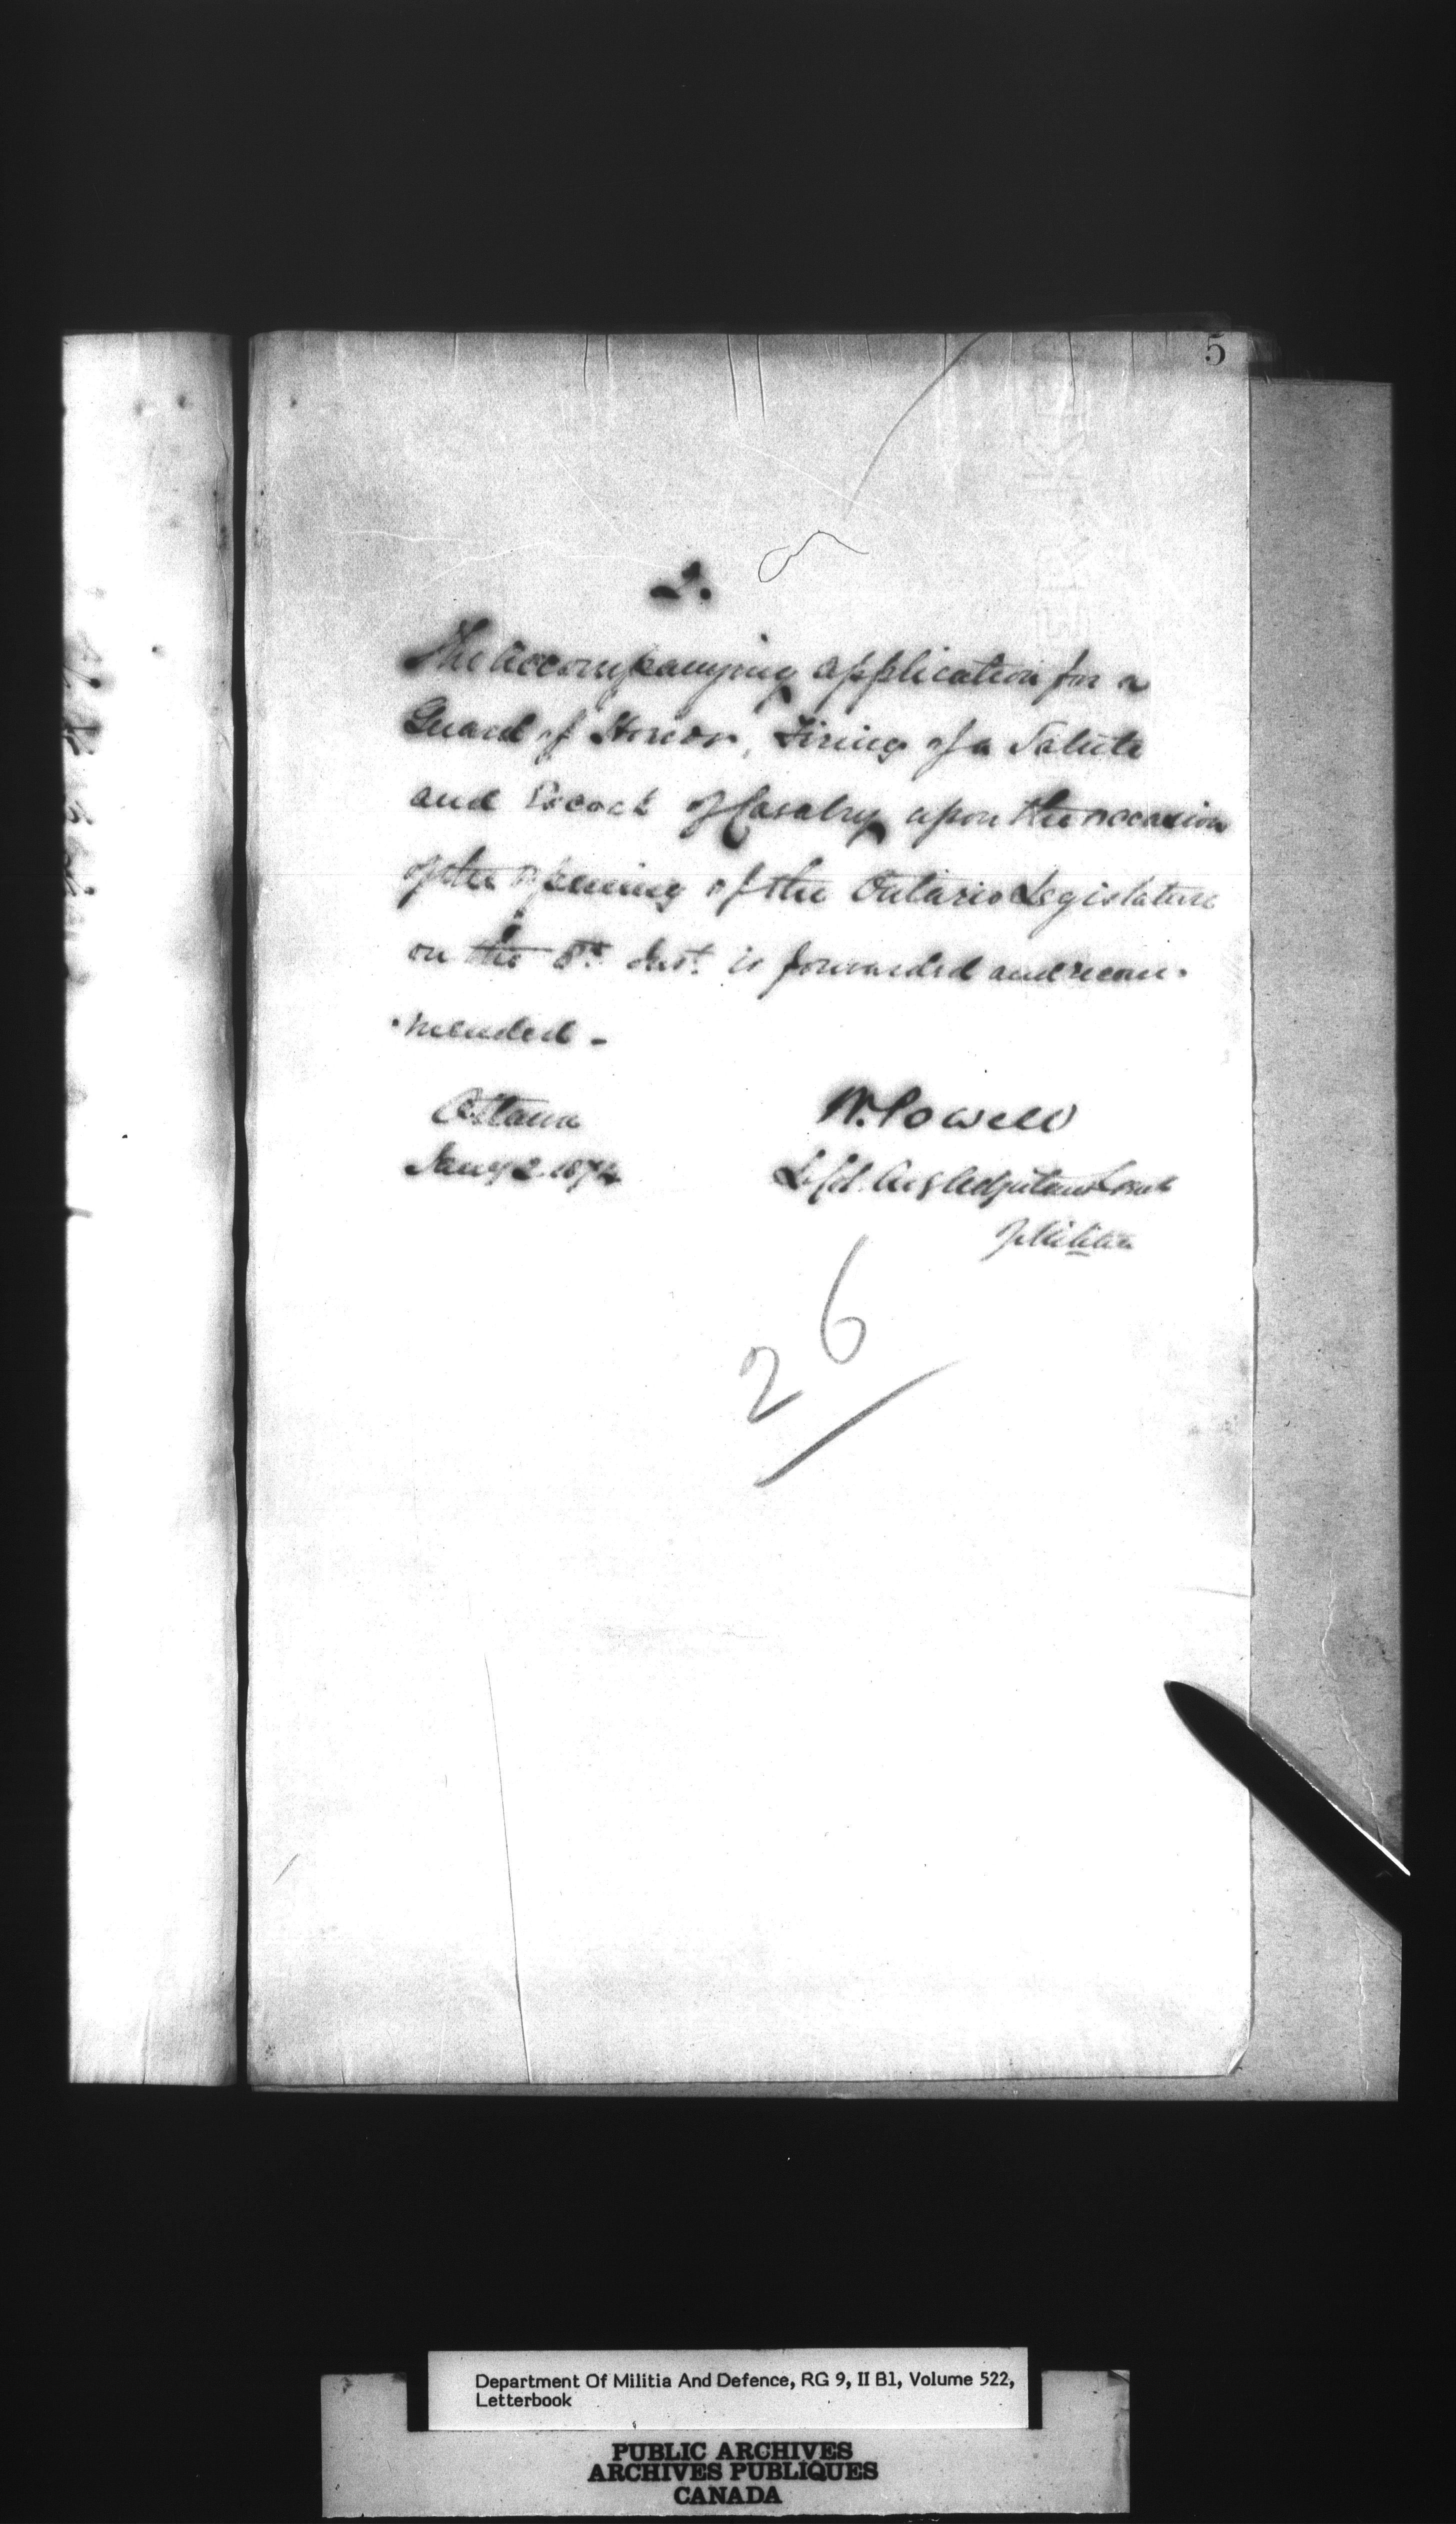 5
2.
The accompanying application for a
Guard of Honor, Firing of a Salute
and Escort of Cavalry upon the occasion
of the opening of the Ontario Legislature
on the 8th Inst. is forwarded and recom-
-mended -
Ottawa
W. Powell
Jany 2 1874
Lt Col. Actg Adjutant Genl
of Militia
26
Department Of Militia And Defence, RG 9, II B1, Volume 522,
Letterbook
PUBLIC ARCHIVES
ARCHIVES PUBLIQUES
CANADA